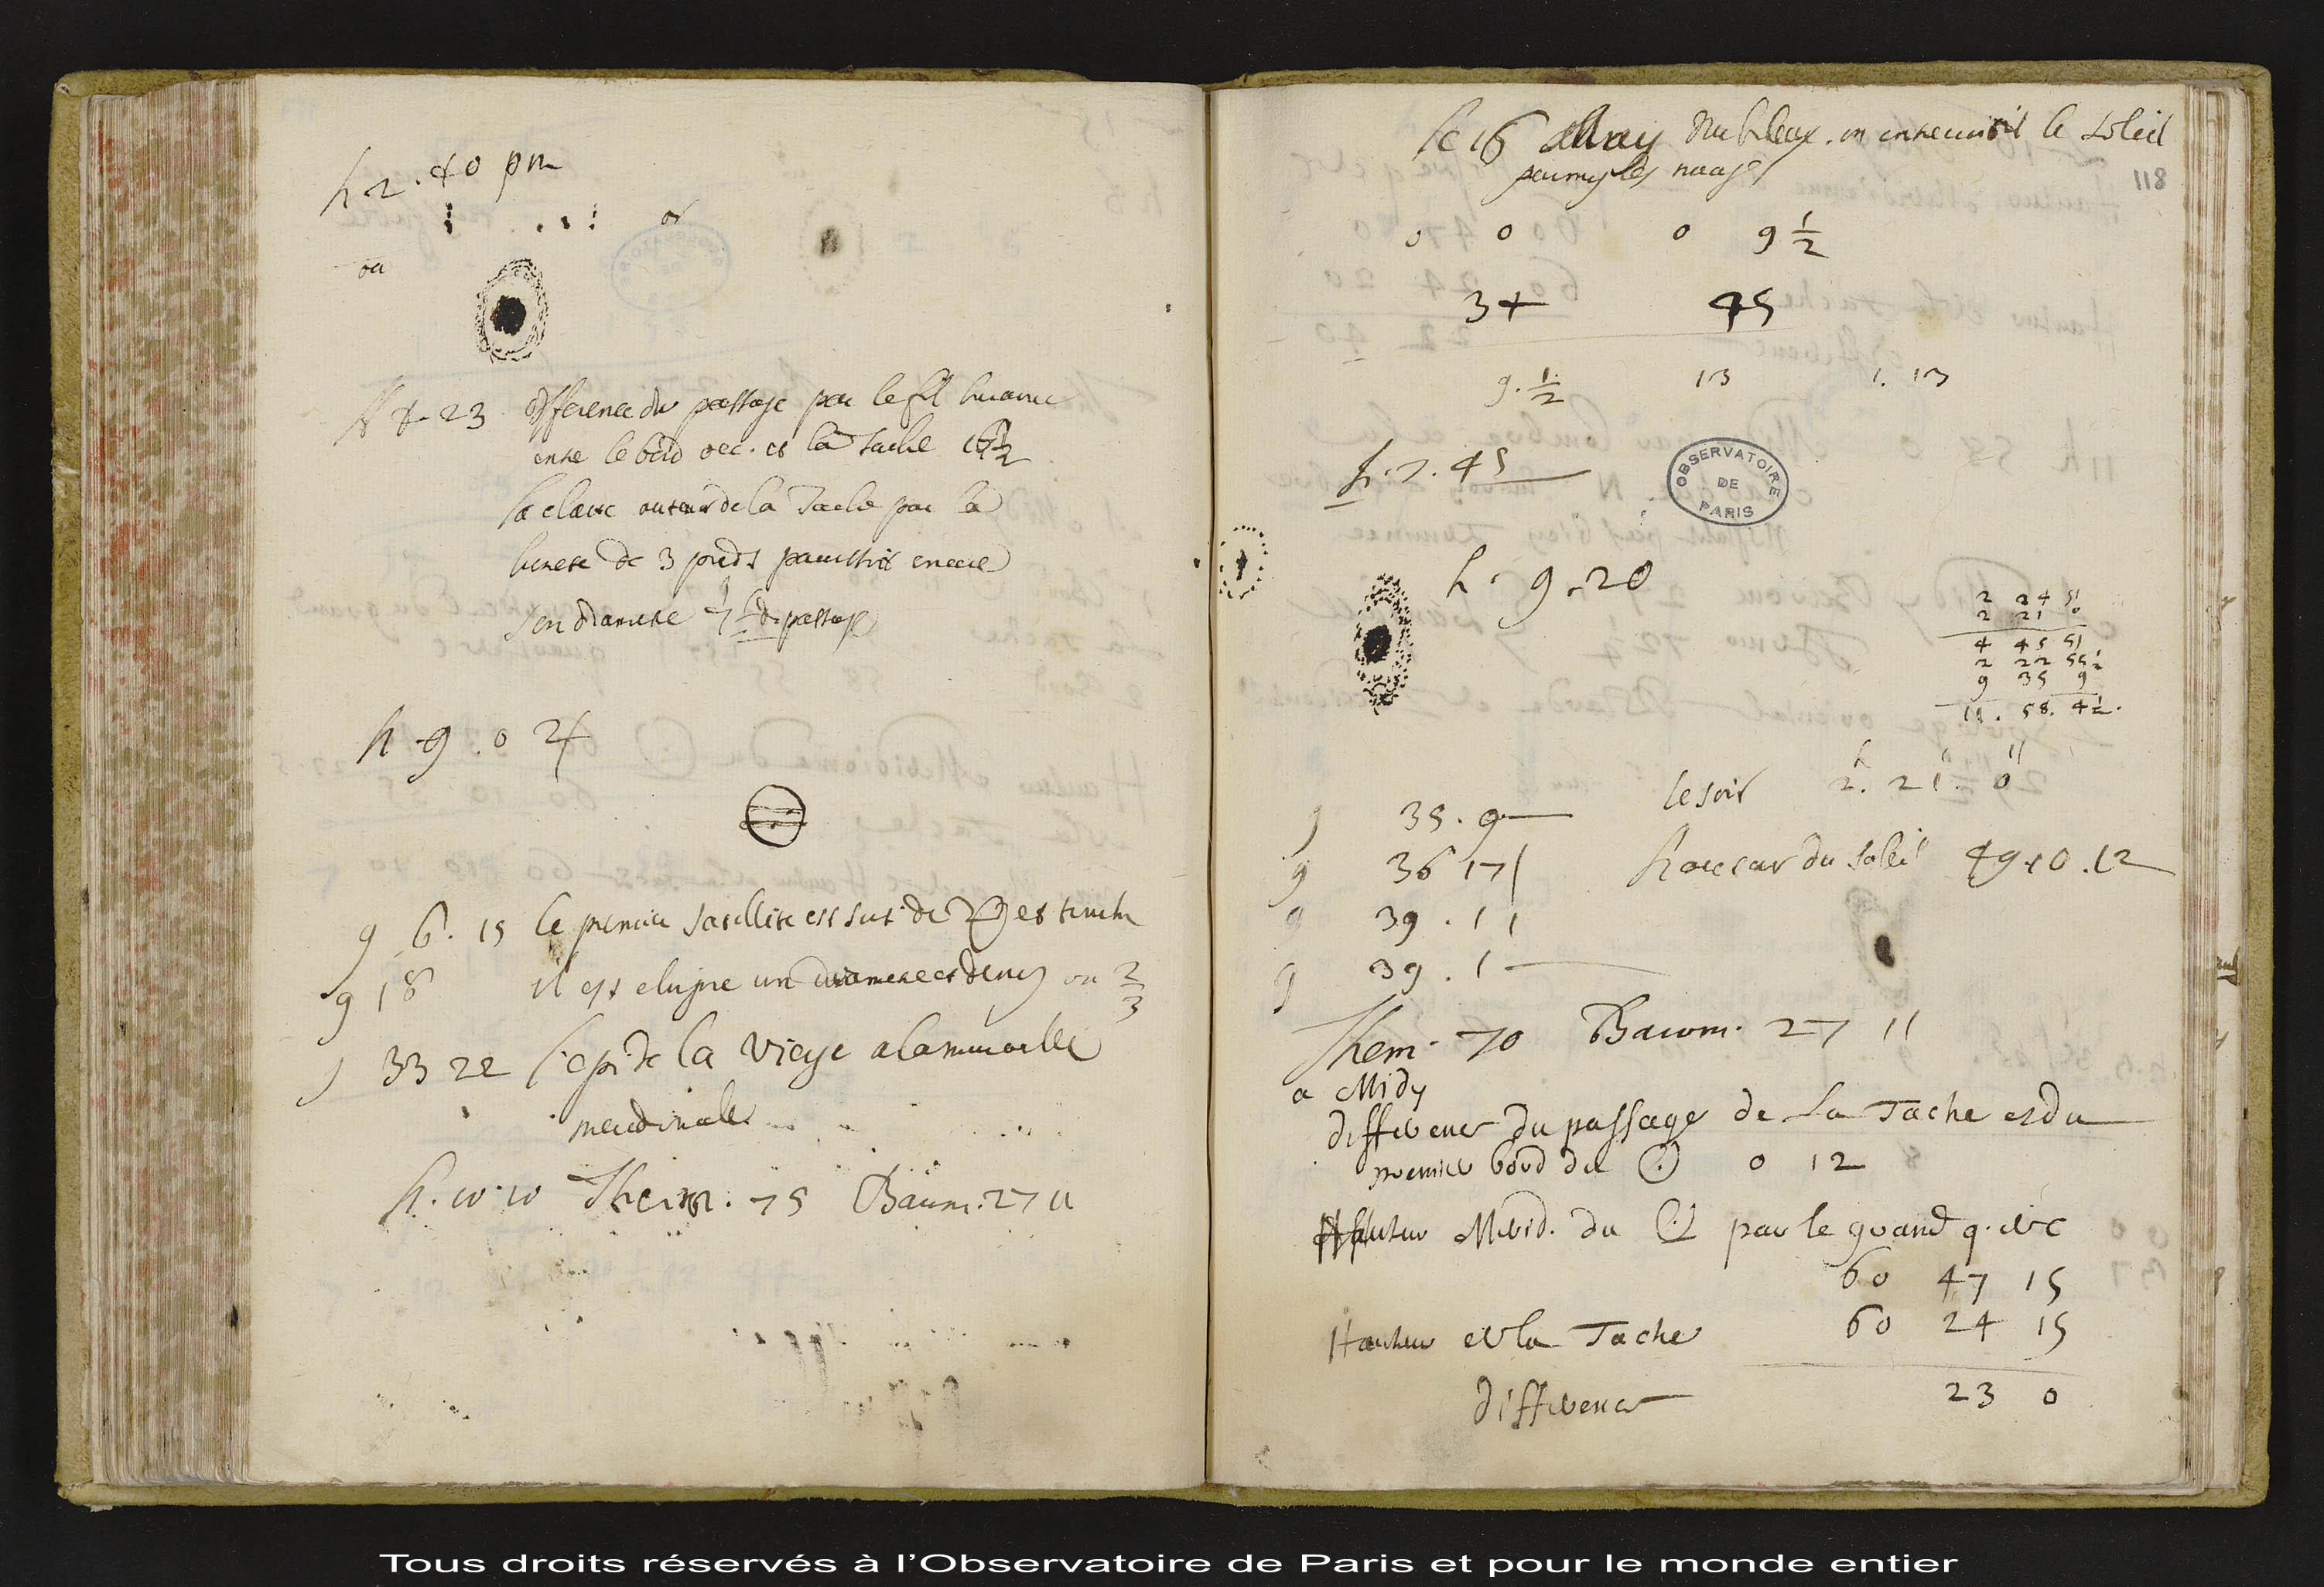 h 2. 40 pm
or
ou
h 4 23 difference du passage par le fil horaire
entre le bord occ. et la Tache 16 1/2
la clarté autour de la Tache par la
lunete de 3 pieds paroissoit encore
son diametre 7 1/2 d. passage
h 9. 0 ♃
9 6. 15 le premier satellite est sur. de ♃ et touche
9 18 il est eloigné un diametre et demy ou 2/3
9 33 22 l'epi de la Vierge a la muraille
meridionale
h. 10. 10 Therm. 75 Barom. 27 11
le 16 May Nubileux. on entrevoioit le soleil
parmy les nuages
118
0 0 0 9 1/2
34 45
9. 1/2 13 1. 13
h. 7. 45
OBSERVATOIRE DE PARIS
h. 9. 20
2 24 51
2 21 0
4 45 51
2 22 55 1/2
9 35 9
11. 58. 4 1/2.
le soir 2. 21. 0
9 35. 9
9 36 17 hauteur du soleil 49 10. 12
9 39. 11
9 39. 1
Therm. 70 Barom. 27 11
a Midy
difference du passage de la Tache et du
premier bord du ☉ 0 12
Hauteur Merid. du ☉ par le grand q. de C
60 47 15
Hauteur de la Tache 60 24 15
difference 23 0
Tous droits réservés à l'Observatoire de Paris et pour le monde entier